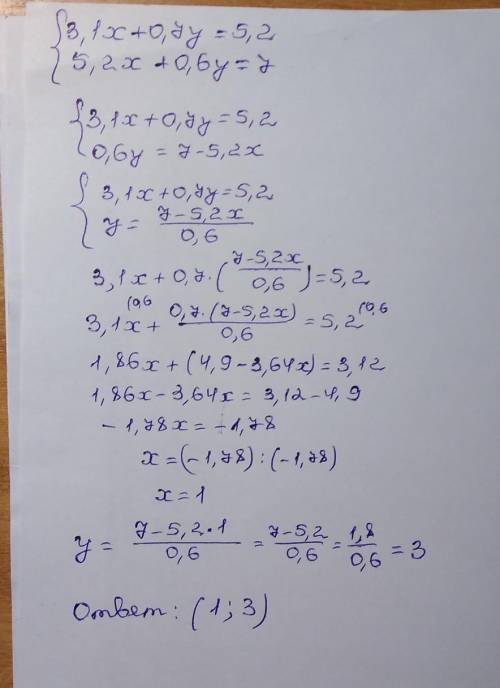 3,1x+0,7y=5,2
5,2x+0,6y=7
3,1x+0,7y=5,2
0,6y=7-5,2x
3,1x+0,7y=5,2
y= (7-5,2x)/0,6
3,1x+0,7·((7-5,2x)/0,6)=5,2
3,1x(0,6 + 0,7·(7-5,2x)/0,6 = 5,2(0,6
1,86x+(4,9-3,64x)=3,12
1,86x-3,64x=3,12-4,9
-1,78x=-1,78
x=(-1,78):(-1,78)
x=1
y= (7-5,2·1)/0,6 = (7-5,2)/0,6 = 1,8/0,6 = 3
Ответ: (1; 3)